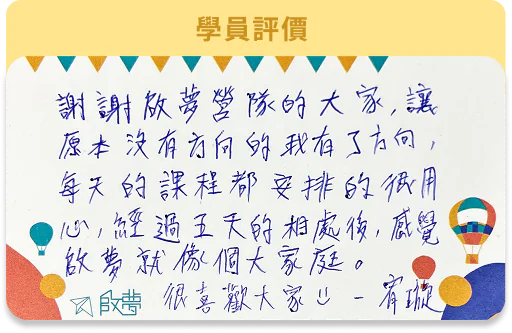 學員評價
謝謝啟夢營隊的大家,讓
原本沒有方向的我有了方向,
每天的課程都安排的很用
心,經過五天的相處後,感覺
啟夢就像個大家庭。
啟夢 很喜歡大家 – 宥璇